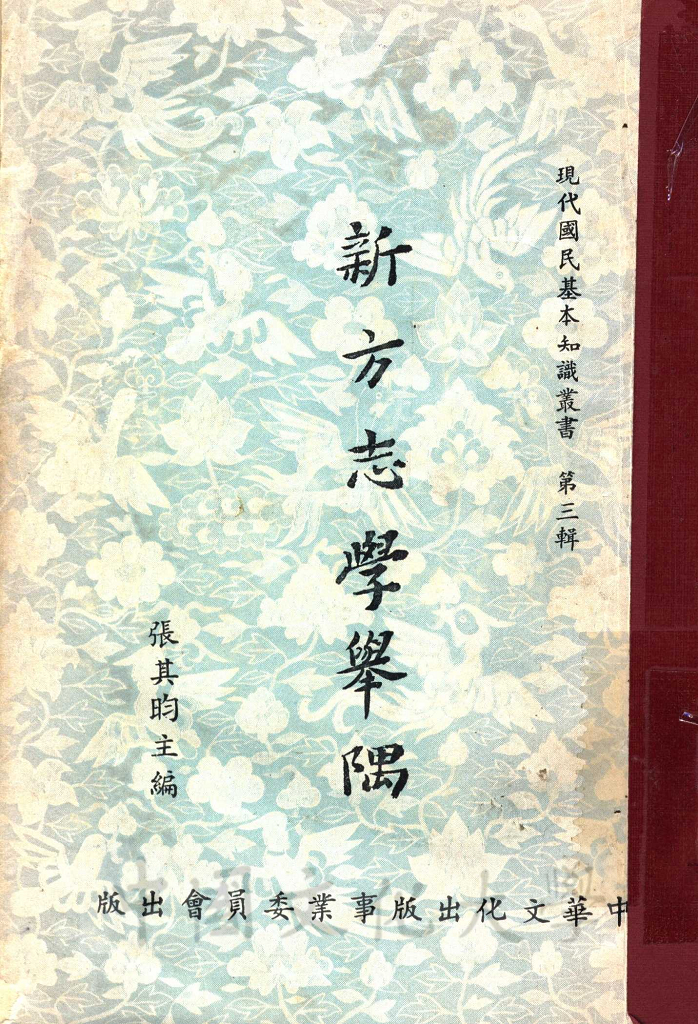 現代國民基本知識叢書 第三輯
新方志學舉隅
張其昀主編
中華文化出版事業委員會出版
中國文化大學